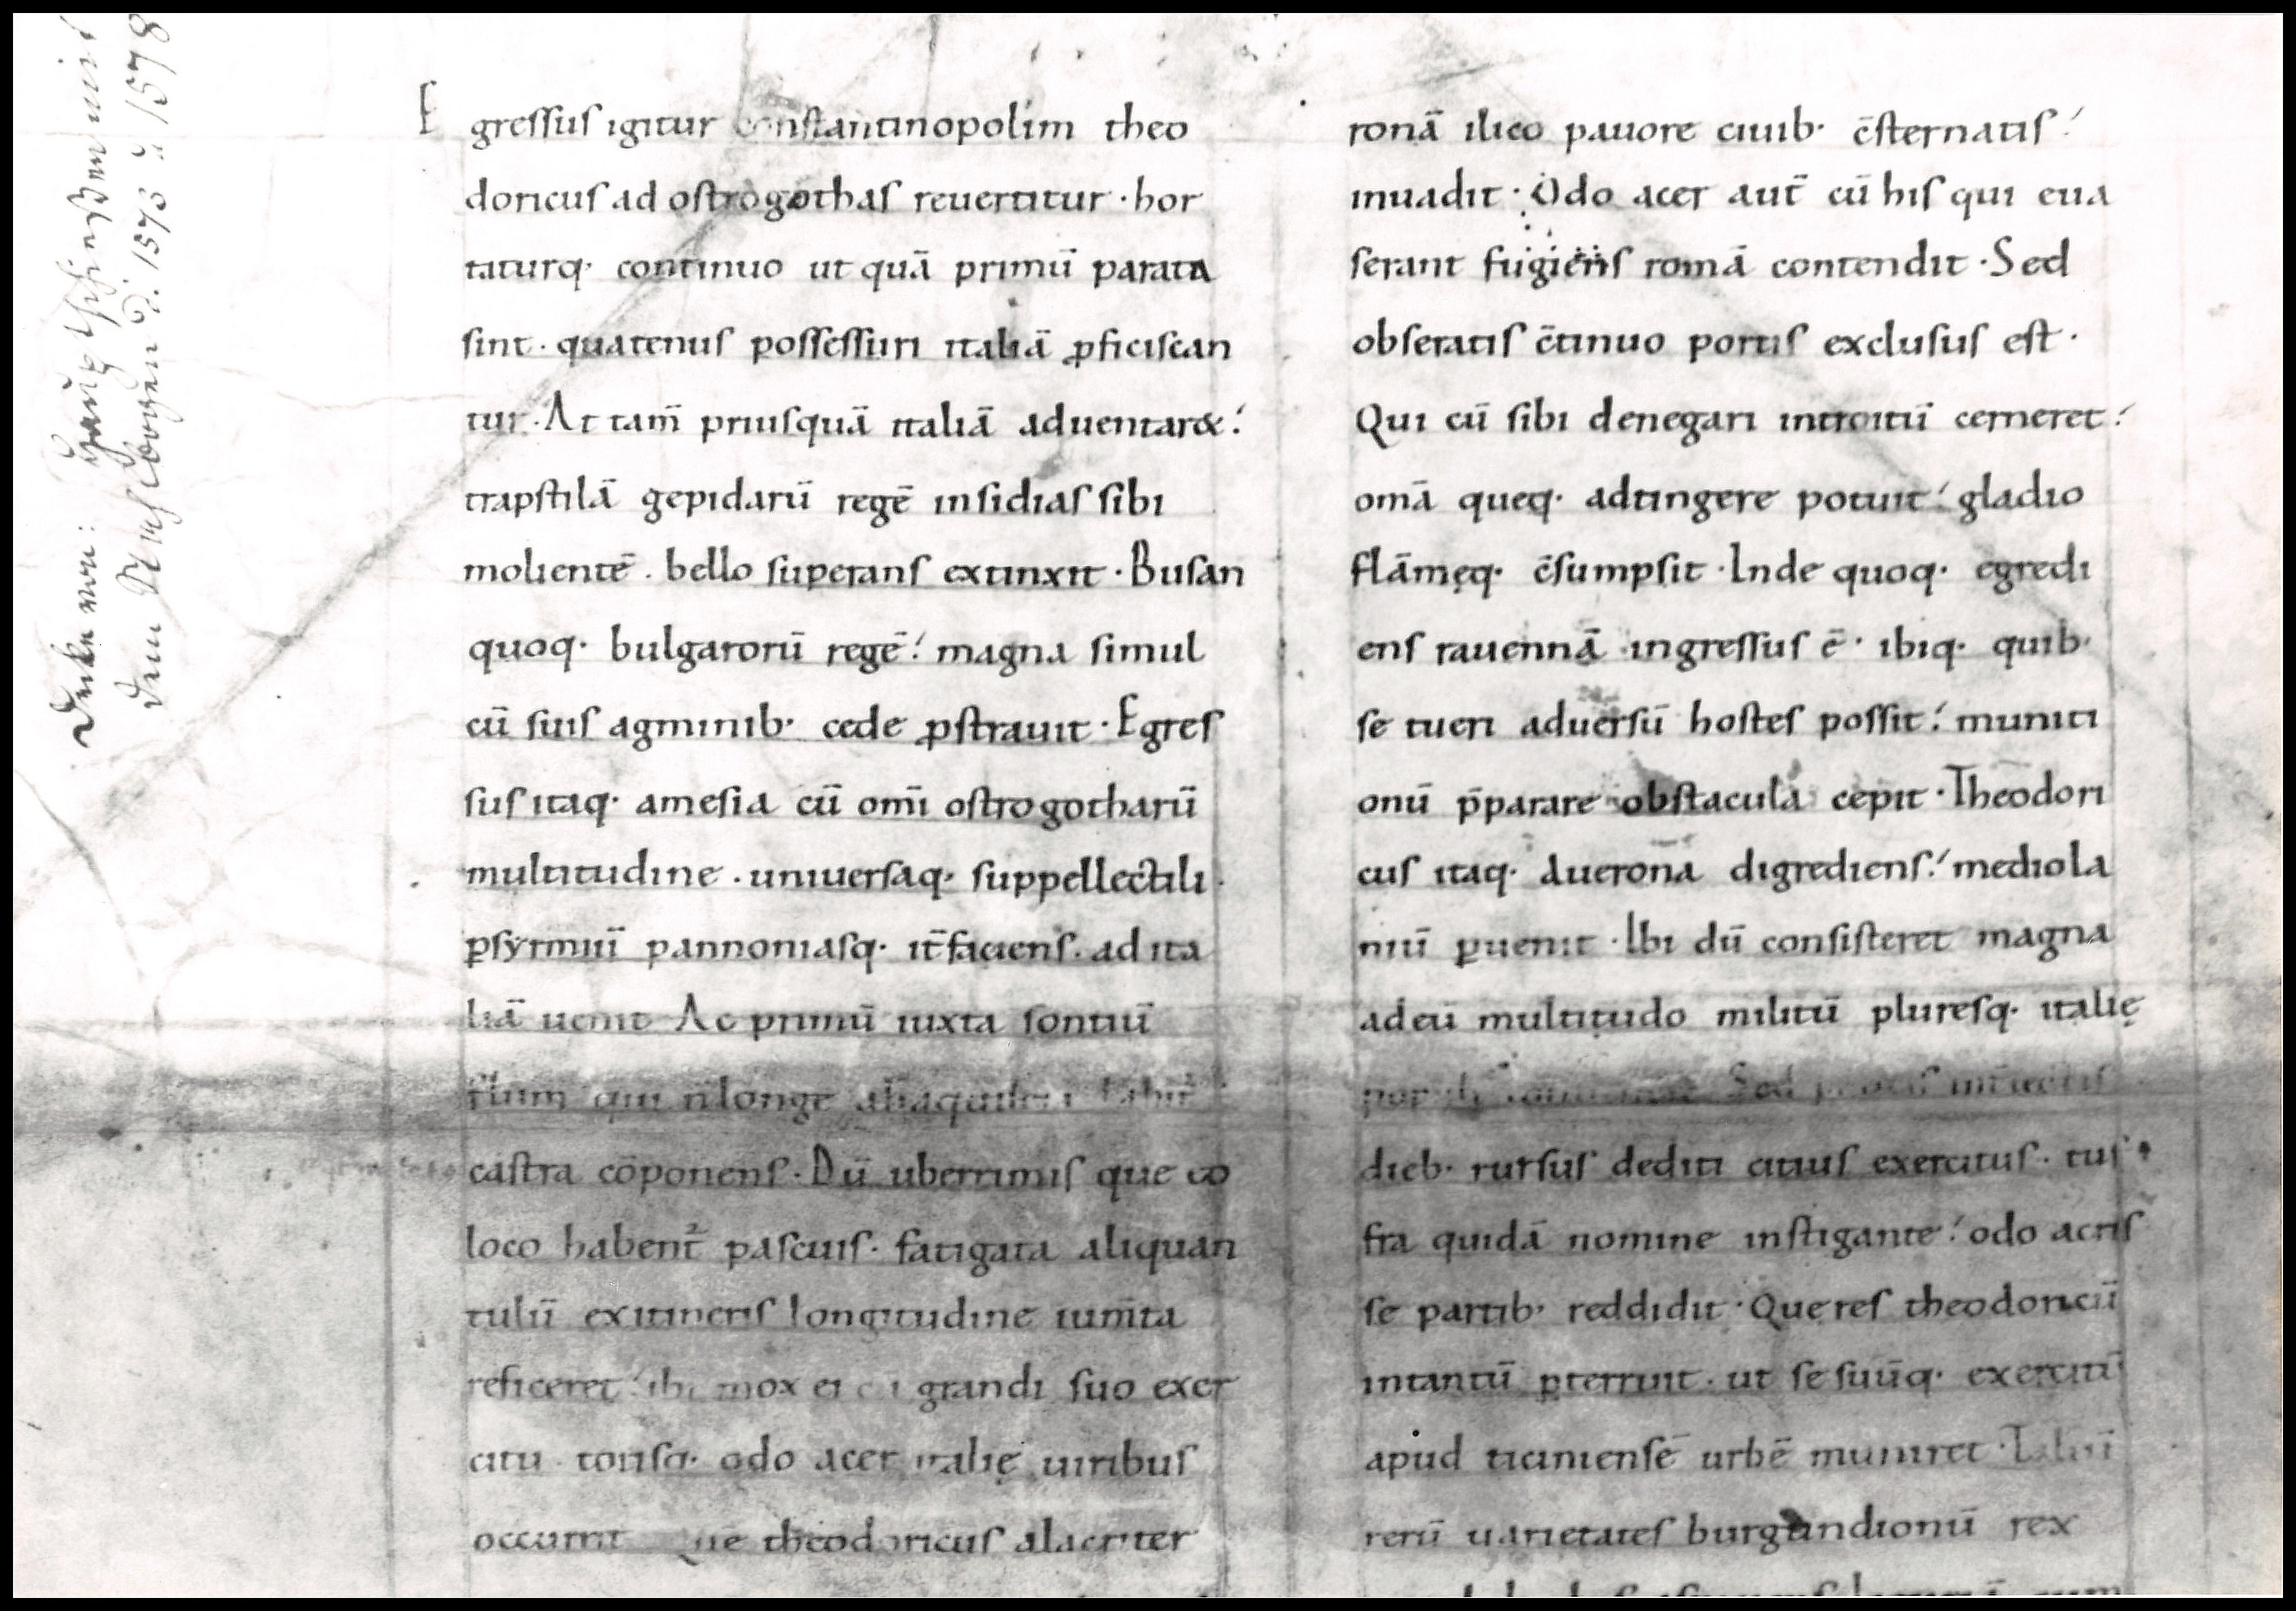 Egressus igitur constantinopolim theo
doricus ad ostrogothas reuertitur · hor
taturq· continuo ut quā primū parata
sint · quatenus possessuri italiā ꝓficiscan
tur · At tam̄ priusquā italiā aduentar&!
trapstilā gepidarū regē insidias sibi
molientē · bello superans extinxit · Busan
quoq· bulgarorū regē! magna simul
cū suis agminib· cede ꝓstrauit · Egres
sus itaq· amesia cū om̄i ostrogotharū
multitudine · uniuersaq· suppellectili ·
ꝑsyrmiū pannoniasq· it̄ faciens · ad ita
liā uenit Ac primū iuxta sontiū
flum qui n̄ longe abaquileia labit̄
castra cōponens · Dū uberrimis que eo
loco habent̄ pascuis · fatigata aliquan
tulū exitineris longitudine ium̄ta
reficeret! ibi mox ei grandi suo exer
citu totisq· odo acer italię uiribus
occurrit Que theodoricus alacriter
ronā ilico pauore ciuib· c̄sternatis!
inuadit · Odo acer aut̄ cū his qui eua
serant fugiens romā contendit · Sed
obseratis c̄tinuo portis exclusus est ·
Qui cū sibi denegari introitū cerneret!
omā queq· adtingere potuit! gladio
flāmęq· c̄sumpsit · Inde quoq· egredi
ens rauennā ingressus ē · ibiq· quib·
se tueri aduersū hostes possit! muniti
onū p̄parare obstacula cepit · Theodori
cus itaq· auerona digrediens! mediola
niū ꝑuenit · Ibi dū consisteret magna
adeū multitudo militū pluresq· italię
Sed
dieb· rursus dediti citius exercitus · tus
fra quidā nomine instigante! odo acris
se partib· reddidit · Que res theodoricū
intantū ꝑterruit · ut se suūq· exercitū
apud ticiniensē urbē muniret ·
rerū uarietates burgundionū rex
1573 1578